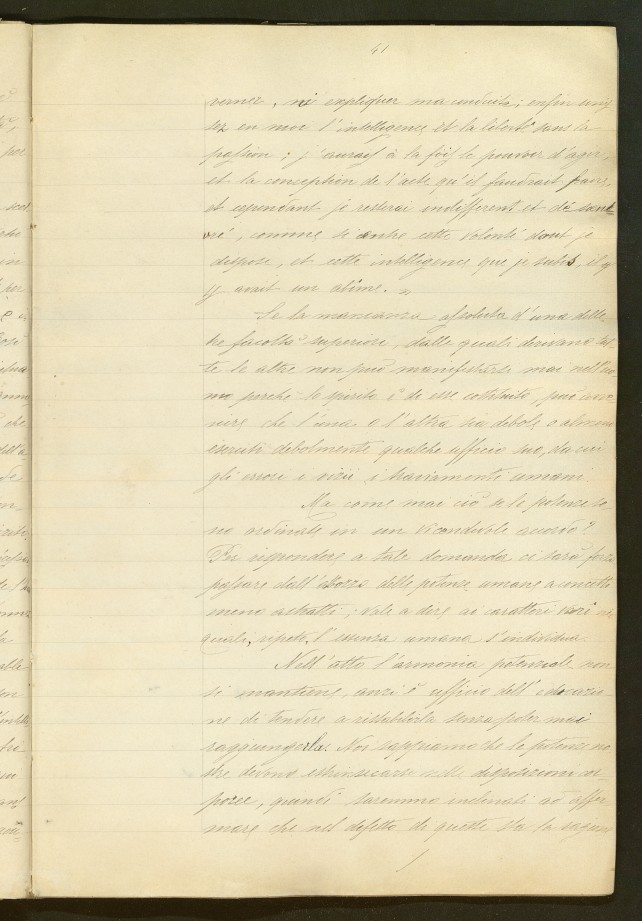 41
verner, ni expliquer ma conduite; enfin unis
sez en moi l'intelligence et la liberté sans la
passion; j'aurais à la fois le pouvoir d'agir,
et la conception de l'acte qu'il faudrait faire,
et cependant je resterai indifferent et dé
comme si entre cette volonté dont je
dispose, et cette intelligence que je subis, il y
y avait un abîme. »
Se la mancanza assoluta d'una delle
tre facoltà superiori, dalle quali derivano tut
te le altre non può manifestarsi mai nell'uo
mo perchè lo spirito è da esse costituito, può avve
nire che l'una o l'altra sia debole o almeno
eserciti debolmente qualche ufficio suo, da cui
gli errori i vizii i traviamenti umani.
Ma come mai ciò se le potenze so
no ordinate in un vicendevole accordo?
Per rispondere a tale domanda ci sarà forza
passare dall' delle potenze umane a concetti
meno astratti; vale a dire ai caratteri
quali, ripeto, l'essenza umana s'individua.
Nell'atto l'armonia potenziale non
si mantiene, anzi è ufficio dell'educazio
ne di tendere a ristabilirla senza poter mai
raggiungerla. Noi sappiamo che le potenze no
stre devono estrinsecarsi nelle disposizioni cor
poree, quindi saremmo inclinati ad affer
mare che nel difetto di queste sta la ragione